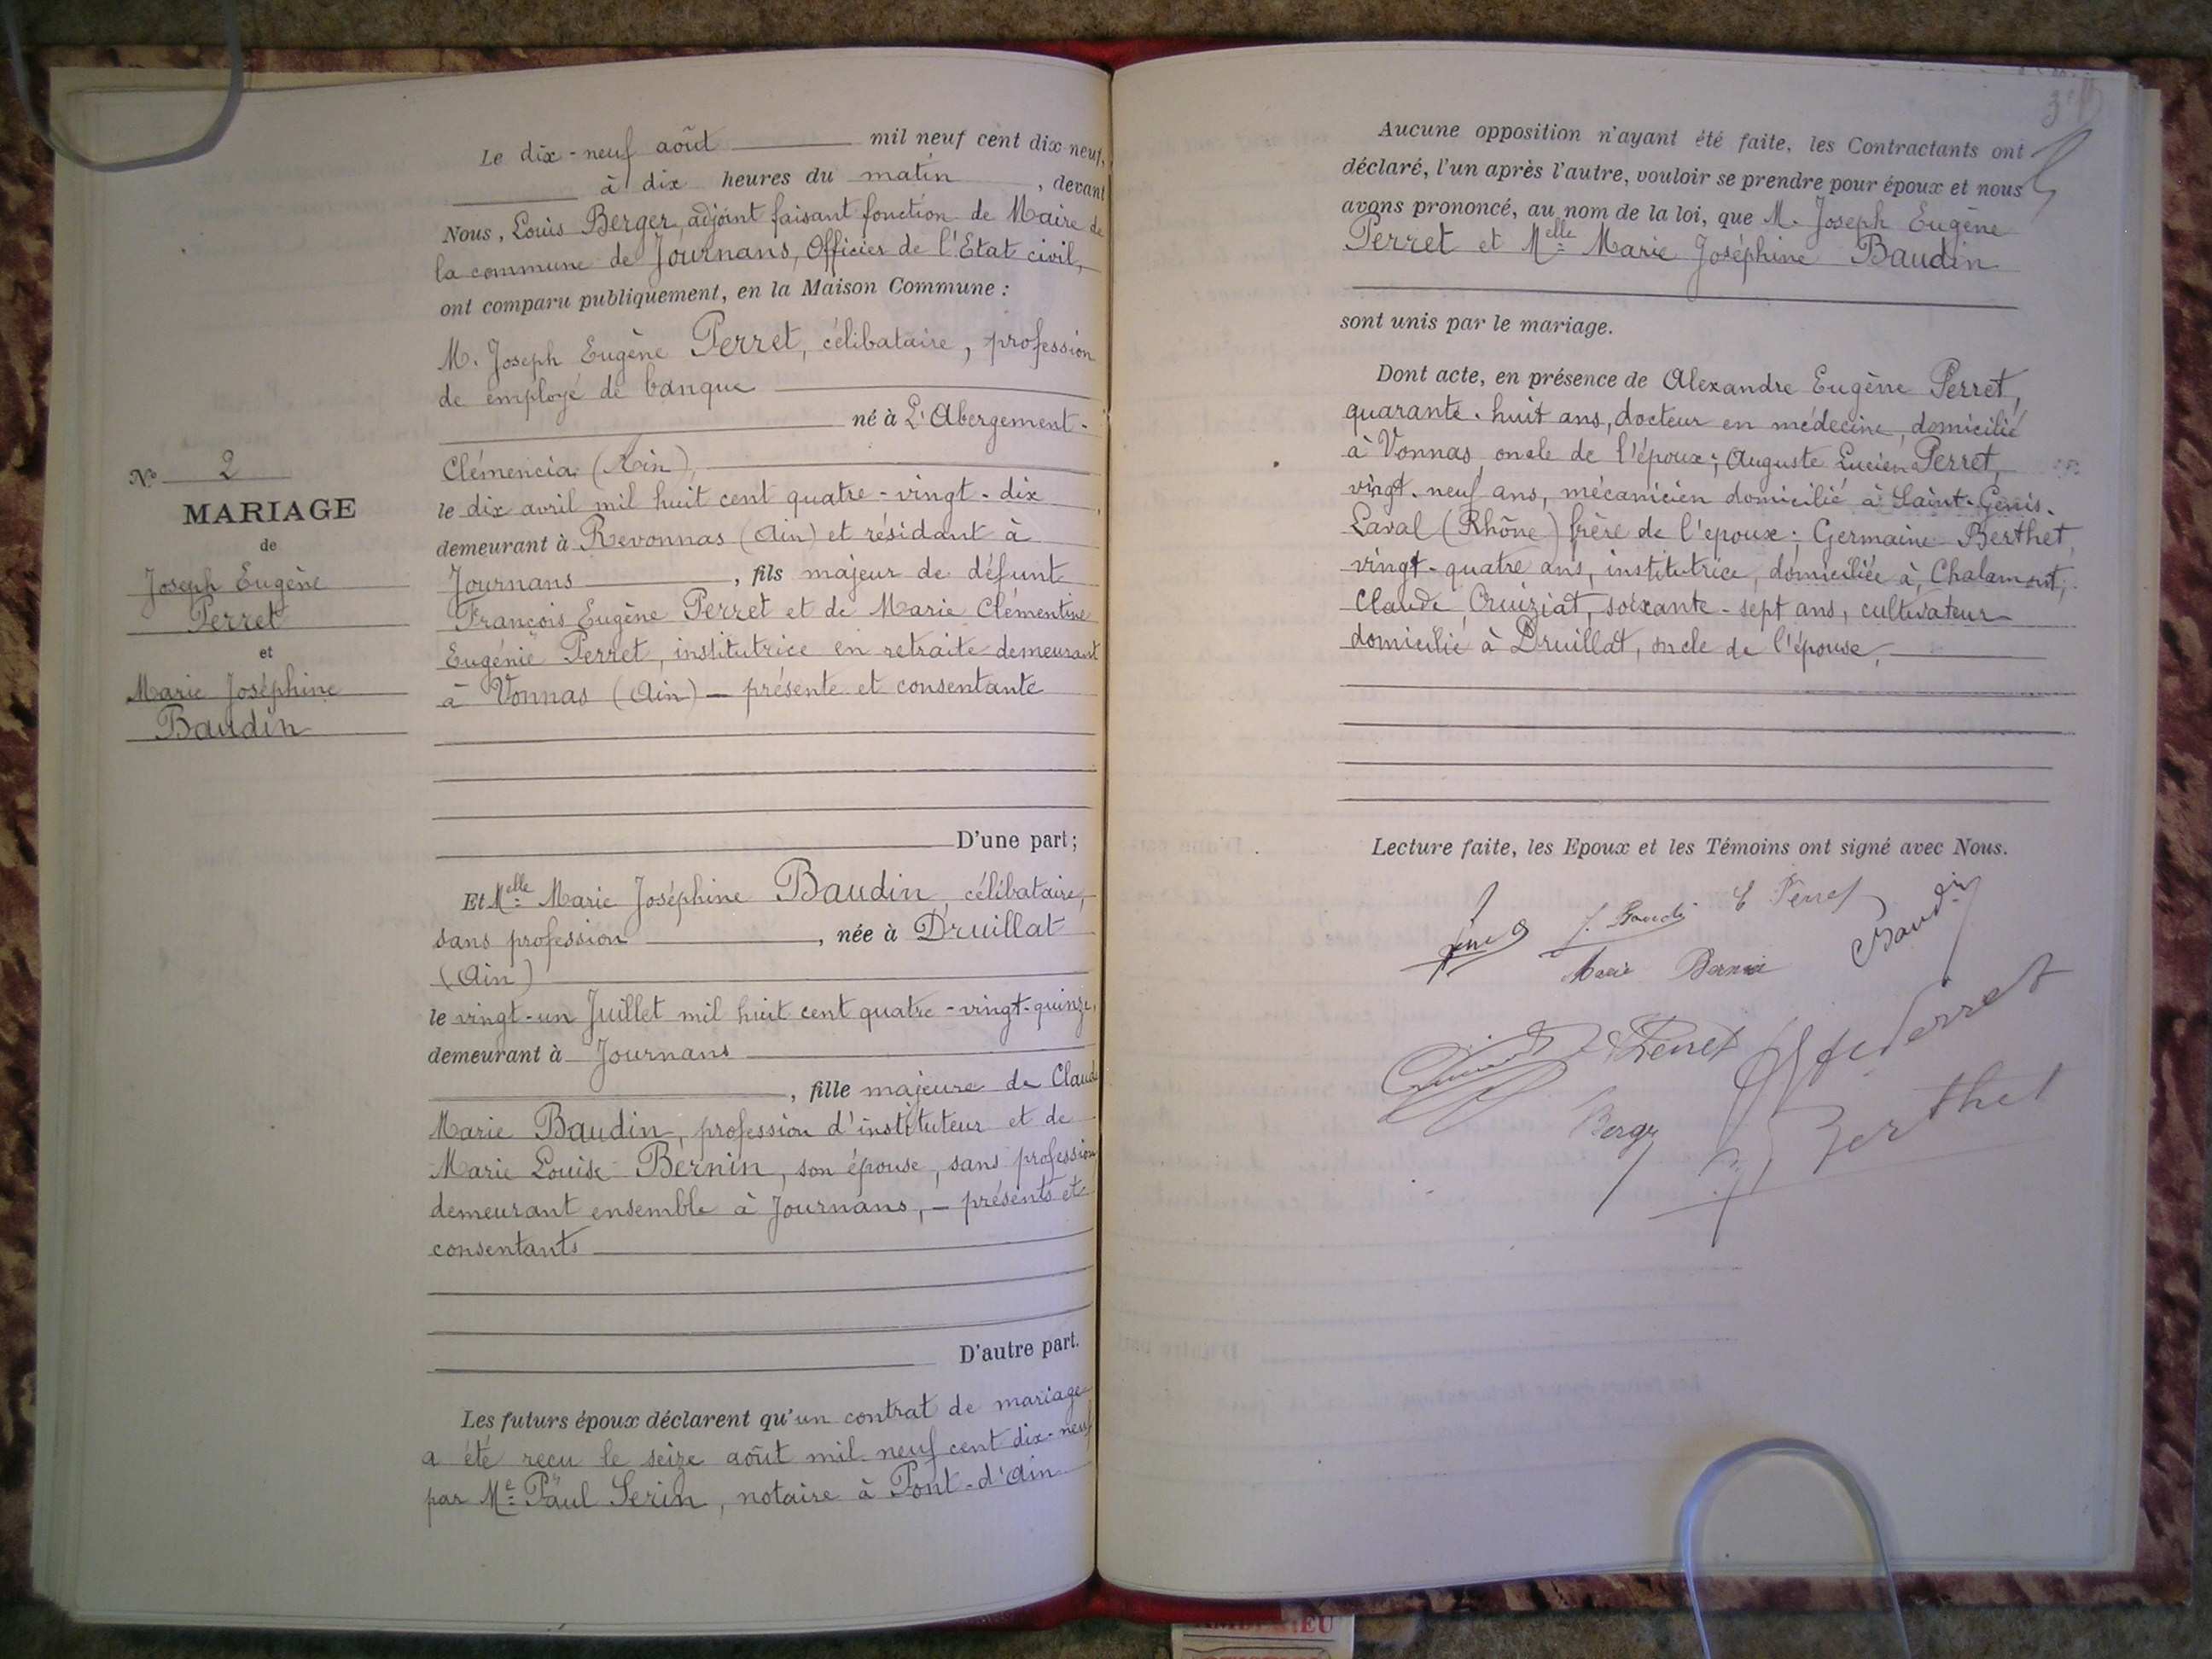 N° 2
MARIAGE
de
Joseph Eugène
Perret
et
Marie Joséphine
Baudin
Le dix-neuf août mil neuf cent dix-neuf,
à dix heures du matin, devant
Nous, Louis Berger, adjoint faisant fonction de Maire de
la commune de Journans, Officier de l'Etat civil,
ont comparu publiquement, en la Maison Commune :
M. Joseph Eugène Perret, célibataire, profession
de employé de banque
né à L'Abergement-
Clémencia (Ain),
le dix avril mil huit cent quatre-vingt-dix
demeurant à Revonnas (Ain) et résidant à
Journans, fils majeur de défunt
François Eugène Perret et de Marie Clémentine
Eugénie Perret, institutrice en retraite demeurant
à Vonnas (Ain) — présente et consentante
D'une part;
Et Melle Marie Joséphine Baudin, célibataire,
sans profession, née à Druillat
(Ain)
le vingt-un Juillet mil huit cent quatre-vingt-quinze,
demeurant à Journans
, fille majeure de Claude
Marie Baudin, profession d'instituteur et de
Marie Louise Bernin, son épouse, sans profession
demeurant ensemble à Journans, — présents et
consentants
D'autre part.
Les futurs époux déclarent qu'un contrat de mariage
a été reçu le seize août mil neuf cent dix-neuf
par Me Paul Serin, notaire à Pont-d'Ain
Aucune opposition n'ayant été faite, les Contractants ont
déclaré, l'un après l'autre, vouloir se prendre pour époux et nous
avons prononcé, au nom de la loi, que M. Joseph Eugène
Perret et Melle Marie Joséphine Baudin
sont unis par le mariage.
Dont acte, en présence de Alexandre Eugène Perret,
quarante-huit ans, docteur en médecine, domicilié
à Vonnas, oncle de l'époux; Auguste Lucien Perret,
vingt-neuf ans, mécanicien domicilié à Saint-Genis-
Laval (Rhône) frère de l'epoux; Germaine Berthet,
vingt-quatre ans, institutrice, domiciliée à Chalamont;
Claude Cruiziat, soixante-sept ans, cultivateur
domicilié à Druillat, oncle de l'épouse,
Lecture faite, les Epoux et les Témoins ont signé avec Nous.
J. Baudin
E Perret
Baudin
Marie Bernin
Perret
Perret
Berger
Berthet